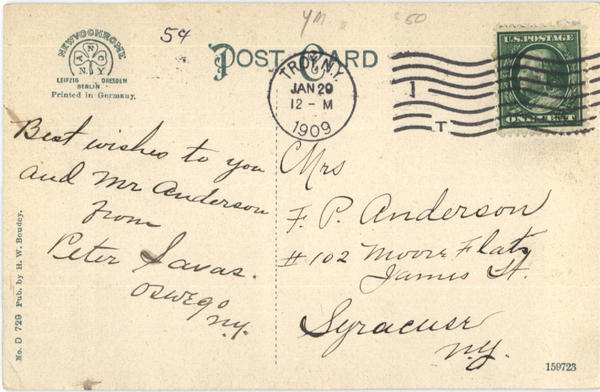 5¢
YM
50
NEWVOCHROME
A N C
N.Y.
LEIPZIG DRESDEN
BERLIN
Printed in Germany.
POST CARD
TROY, N.Y.
JAN 29
12 - M
1909
1
T
U.S. POSTAGE
ONE CENT
Best wishes to you
and Mr Anderson
from
Peter Savas.
Oswego
N.Y.
Mrs
F. P. Anderson
#102 Moore Flats
James St.
Syracuse
N.Y.
No. D 729 Pub. by H. W. Boudey.
159723